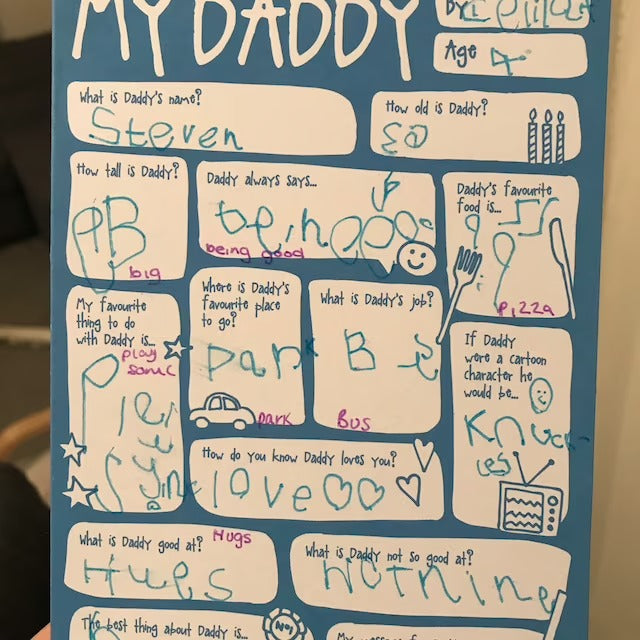 MY DADDY
By:
Age 4
What is Daddy's name?
Steven
How old is Daddy?
How tall is Daddy?
big
Daddy always says...
being good
Daddy's favourite
food is...
pizza
My favourite
thing to do
with Daddy is...
play
sonic
Where is Daddy's
favourite place
to go?
park
park
What is Daddy's job?
Bus
If Daddy
were a cartoon
character he
would be...
Knuck-
les
How do you know Daddy loves you?
love
What is Daddy good at?
Hugs
Hugs
What is Daddy not so good at?
Nothing
The best thing about Daddy is...
No1